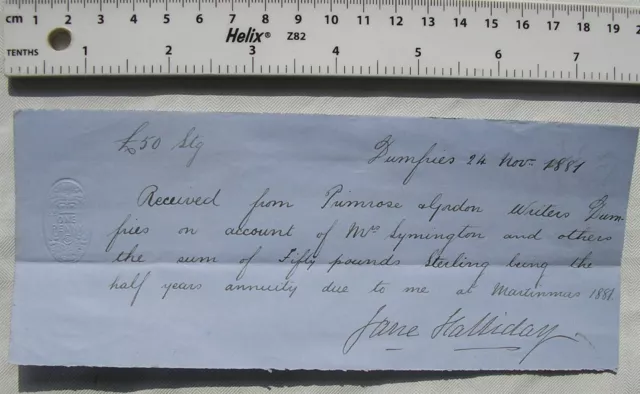 cm 1 2 3 4 5 6 7 8 9 10 11 12 13 14 15 16 17 18 19
Helix® Z82
TENTHS 1 2 3 4 5 6 7
£50 Stg
Dumfries 24 Nov. 1881
Received from Primrose & Gordon Writers Dum-
fries on account of Mrs Symington and others
the sum of Fifty pounds Sterling being the
half years annuity due to me at Martinmas 1881.
Jane Halliday